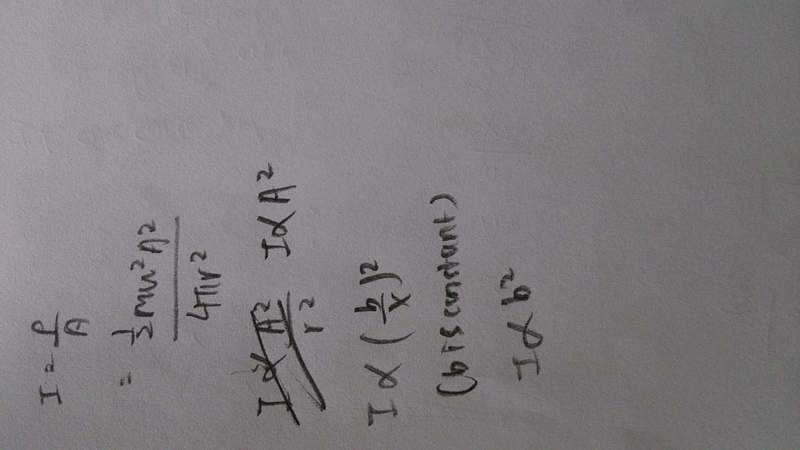 I = P/A
= ½mω²A² / 4πr²
I ∝ A²/r² I ∝ A²
I ∝ (b/x)²
(b is constant)
I ∝ b²